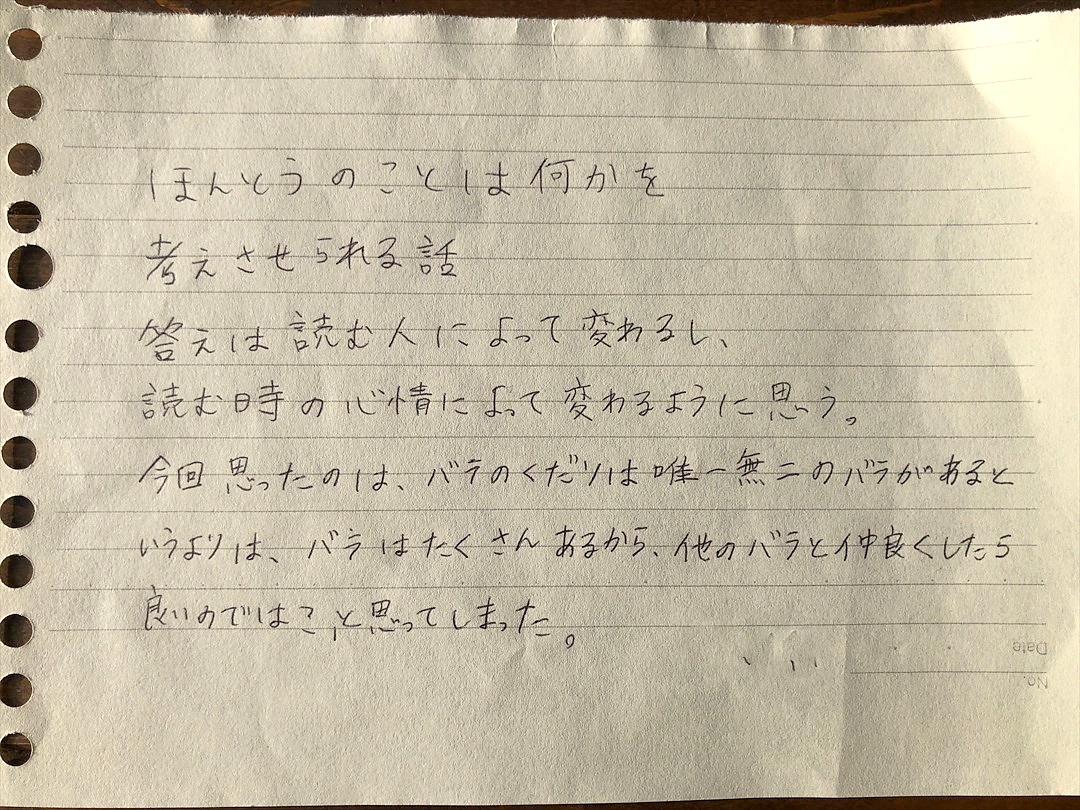 ほんとうのことは何かを
考えさせられる話
答えは読む人によって変わるし、
読む時の心情によって変わるように思う。
今回思ったのは、バラのくだりは唯一無二のバラがあると
いうよりは、バラはたくさんあるから、他のバラと仲良くしたら
良いのでは?と思ってしまった。
Date
No.